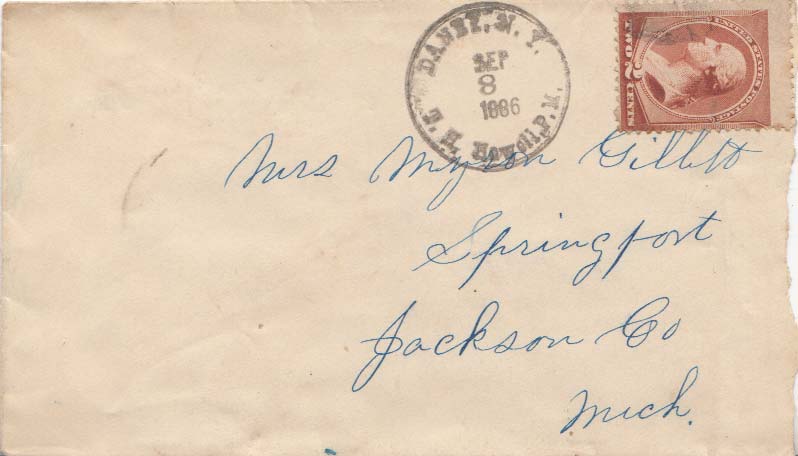 DANBY, N. Y.
SEP
8
1886
P. M.
UNITED STATES POSTAGE
TWO 2 CENTS
Mrs Myron Gillett
Springport
Jackson Co
Mich.